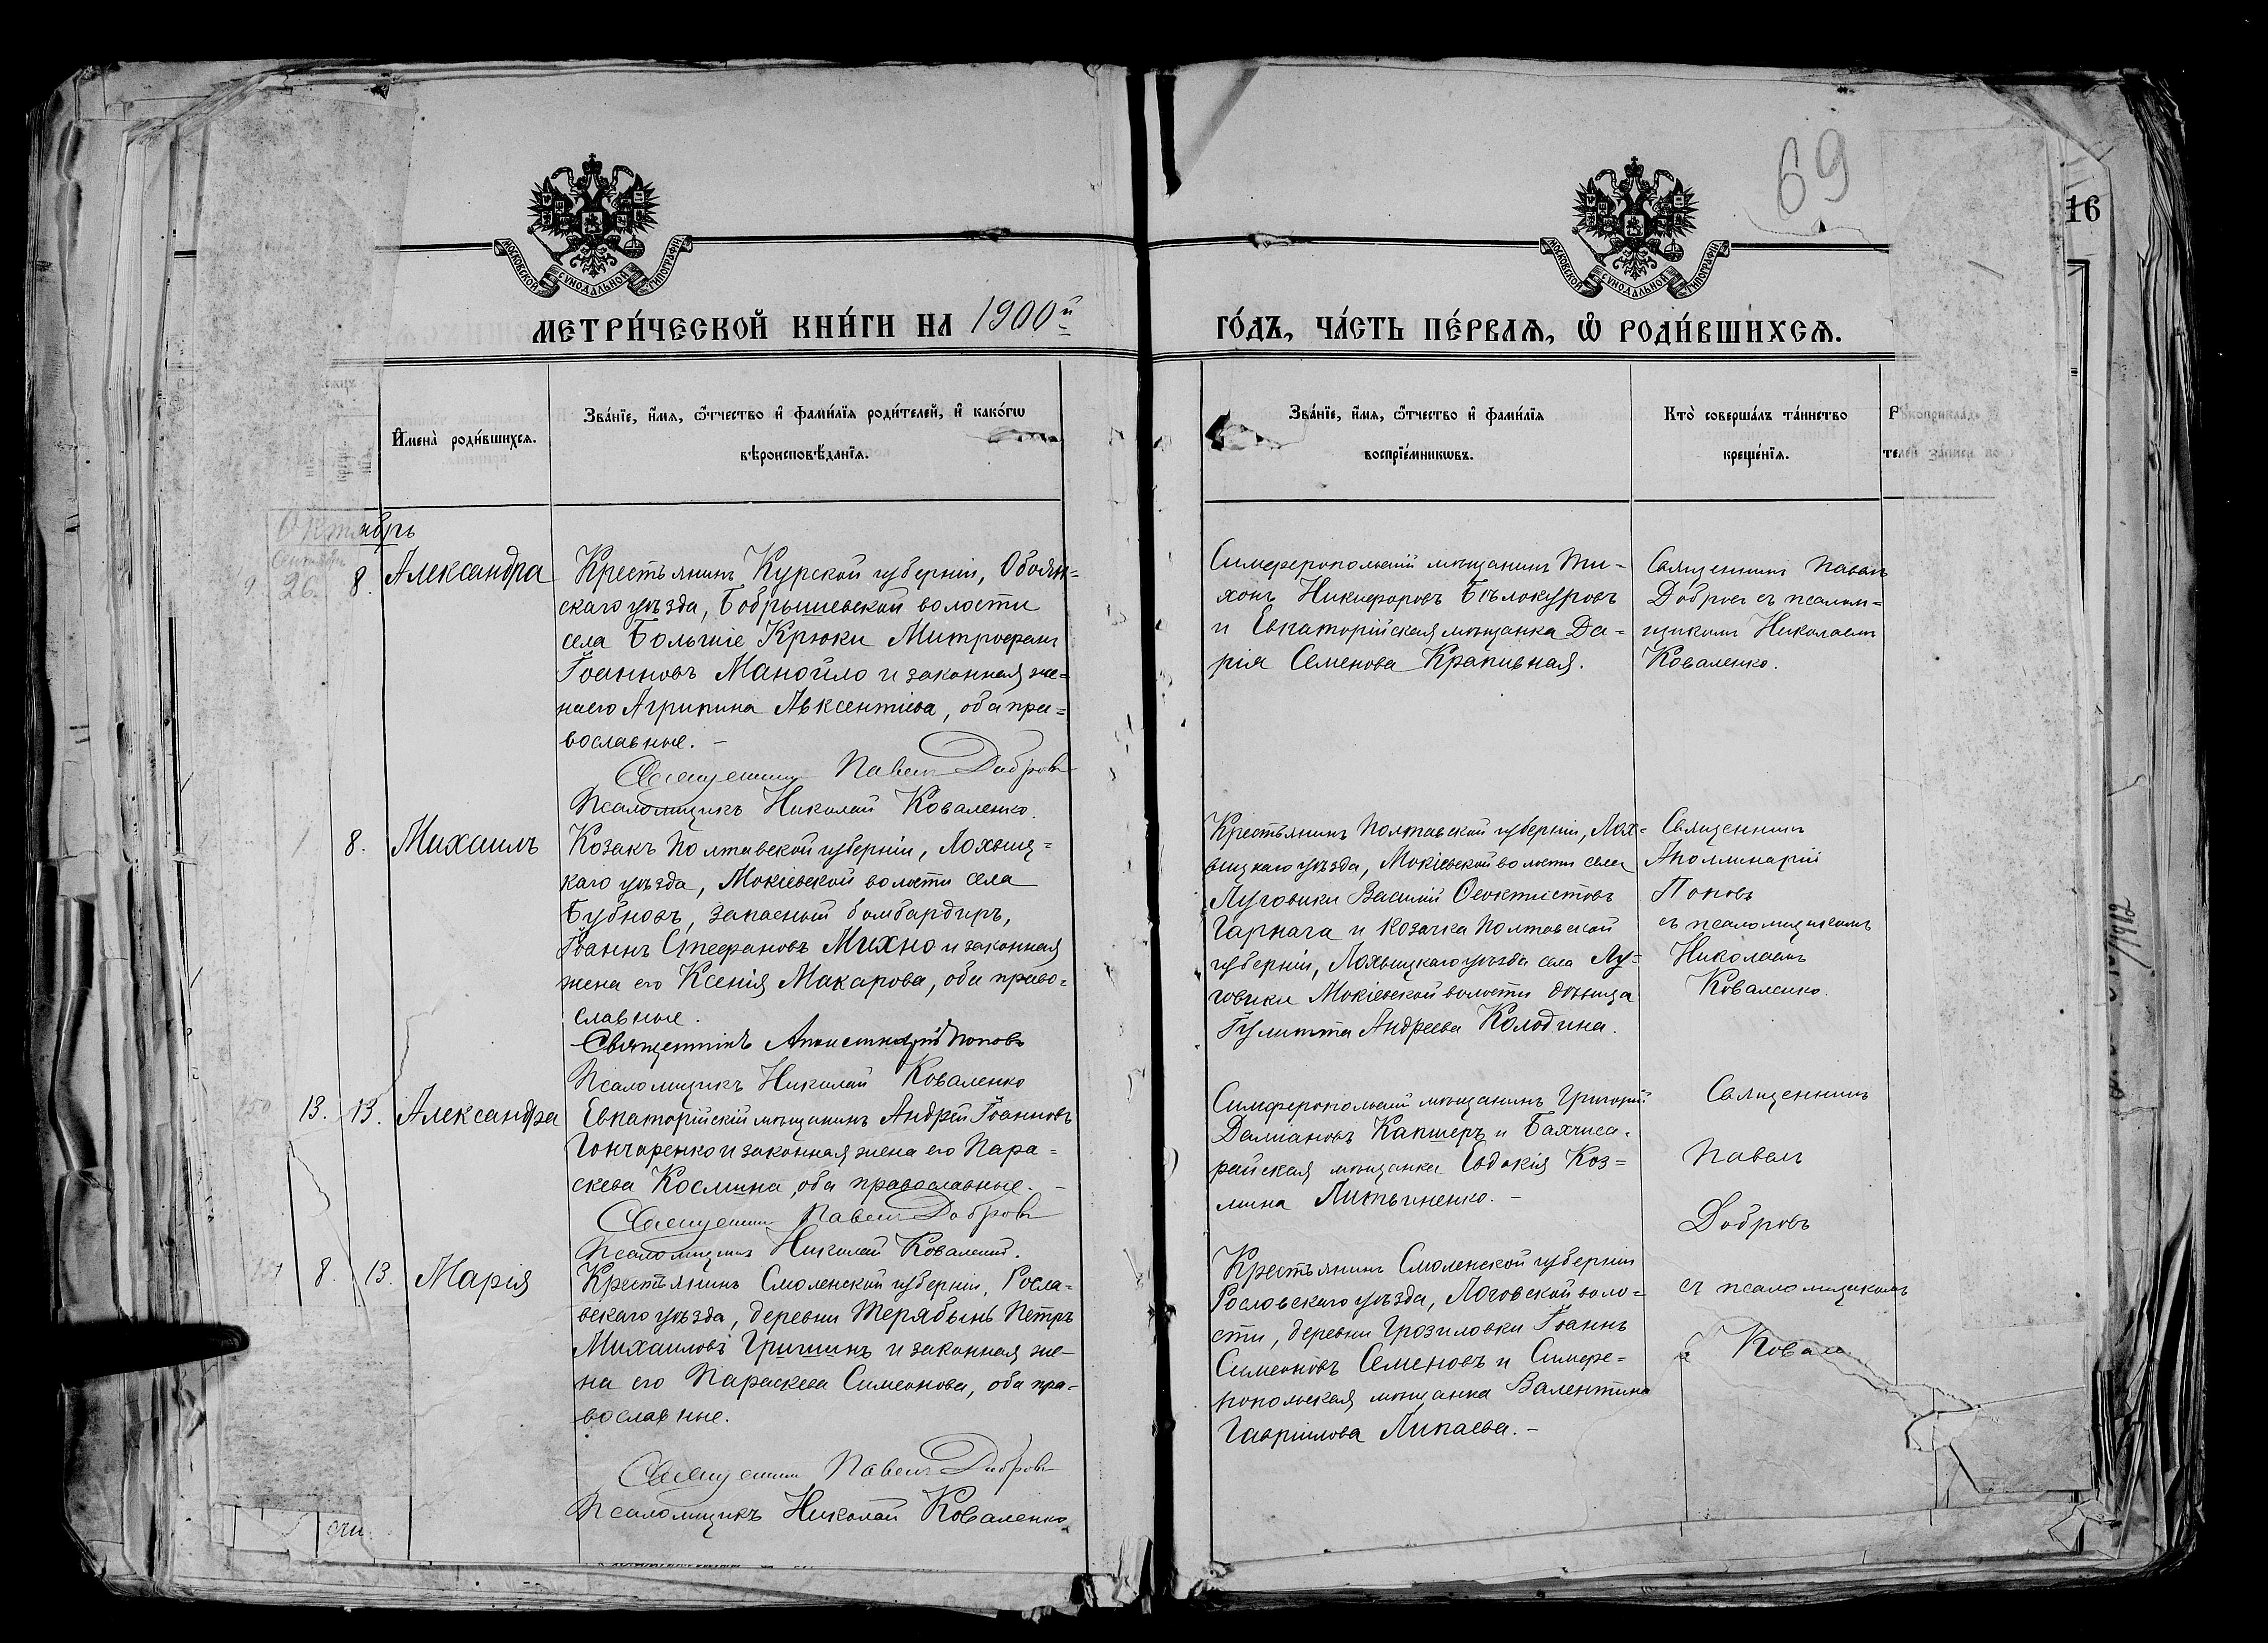 69
16
МОСКОВСКОЙ СѴНОДАЛЬНОЙ ТИПОГРАФІИ
МОСКОВСКОЙ СѴНОДАЛЬНОЙ ТИПОГРАФІИ
МЕТРИ́ЧЕСКОЙ КНИ́ГИ НА 1900й
ГО́ДЪ, ЧА́СТЬ ПЕ́РВАѦ, Ѡ҆ РОДИ́ВШИХСѦ.
И҆мена̀ роди́вшихсѧ.
Зва́нїе, и҆́мѧ, ѻ҆́тчество и҆ фами́лїѧ роди́телей, и҆ како́гѡ
вѣроисповѣ́данїѧ.
Зва́нїе, и҆́мѧ, ѻ҆́тчество и҆ фами́лїѧ
воспрїе́мникѡвъ.
Кто̀ соверша́лъ та́инство
креще́нїѧ.
Рꙋкоприклад
телей
Октябрь
Сентябрь
26. 8. Александра
Крестьянинъ Курской губерніи, Обоян=
скаго уѣзда, Бобрышевской волости
села Большіе Крюки Митрофанъ
Іоанновъ Манойло и законная же=
на его Агрипина Авксентіева, оба пра=
вославные. –
Священникъ Павелъ Добровъ
Псаломщикъ Николай Коваленко.
Симферопольскій мѣщанинъ Ти=
хонъ Никифоровъ Бѣлокуровъ
и Евпаторійская мѣщанка Да=
рія Семенова Крапивная.
Священникъ Павелъ
Добровъ съ псалом=
щикомъ Николаемъ
Коваленко.
8. Михаилъ
Козакъ Полтавской губерніи, Лохвиц=
каго уѣзда, Мокіевской волости села
Бубновъ, запасный бомбардиръ,
Іоаннъ Стефановъ Михно и законная
жена его Ксенія Макарова, оба право=
славные.
Священникъ Аполлинарій Поповъ
Псаломщикъ Николай Коваленко
Крестьянинъ Полтавской губерніи, Лох=
вицкаго уѣзда, Мокіевской волости села
Луговики Василій Ѳеоктистовъ
Гарнага и козачка Полтавской
губерніи, Лохвицкаго уѣзда села Лу=
говики Мокіевской волости дѣвица
Іулитта Андреева Колодина.
Священникъ
Аполлинарій
Поповъ
съ псаломщикомъ
Николаемъ
Коваленко.
13. 13. Александра
Евпаторійскій мѣщанинъ Андрей Іоанновъ
Гончаренко и законная жена его Пара=
скева Космина, оба православные. –
Священникъ Павелъ Добровъ
Псаломщикъ Николай Коваленко.
Симферопольскій мѣщанинъ Григорій
Даміановъ Капшеръ и Бахчиса=
райская мѣщанка Евдокія Коз=
мина Литвиненко. –
Священникъ
Павелъ
Добровъ
съ псаломщикомъ
8. 13. Марія
Крестьянинъ Смоленской губерніи, Росла=
вскаго уѣзда, деревни Терябынь Петръ
Михаиловъ Гришинъ и законная же=
на его Параскева Симеонова, оба пра=
вославные.
Священникъ Павелъ Добровъ
Псаломщикъ Николай Коваленко
Крестьянинъ Смоленской губерніи
Рословскаго уѣзда, Логовской воло=
сти, деревни Грозиловки Іоаннъ
Симеоновъ Семеновъ и Симфе=
ропольская мѣщанка Валентина
Гавріилова Липаева. –